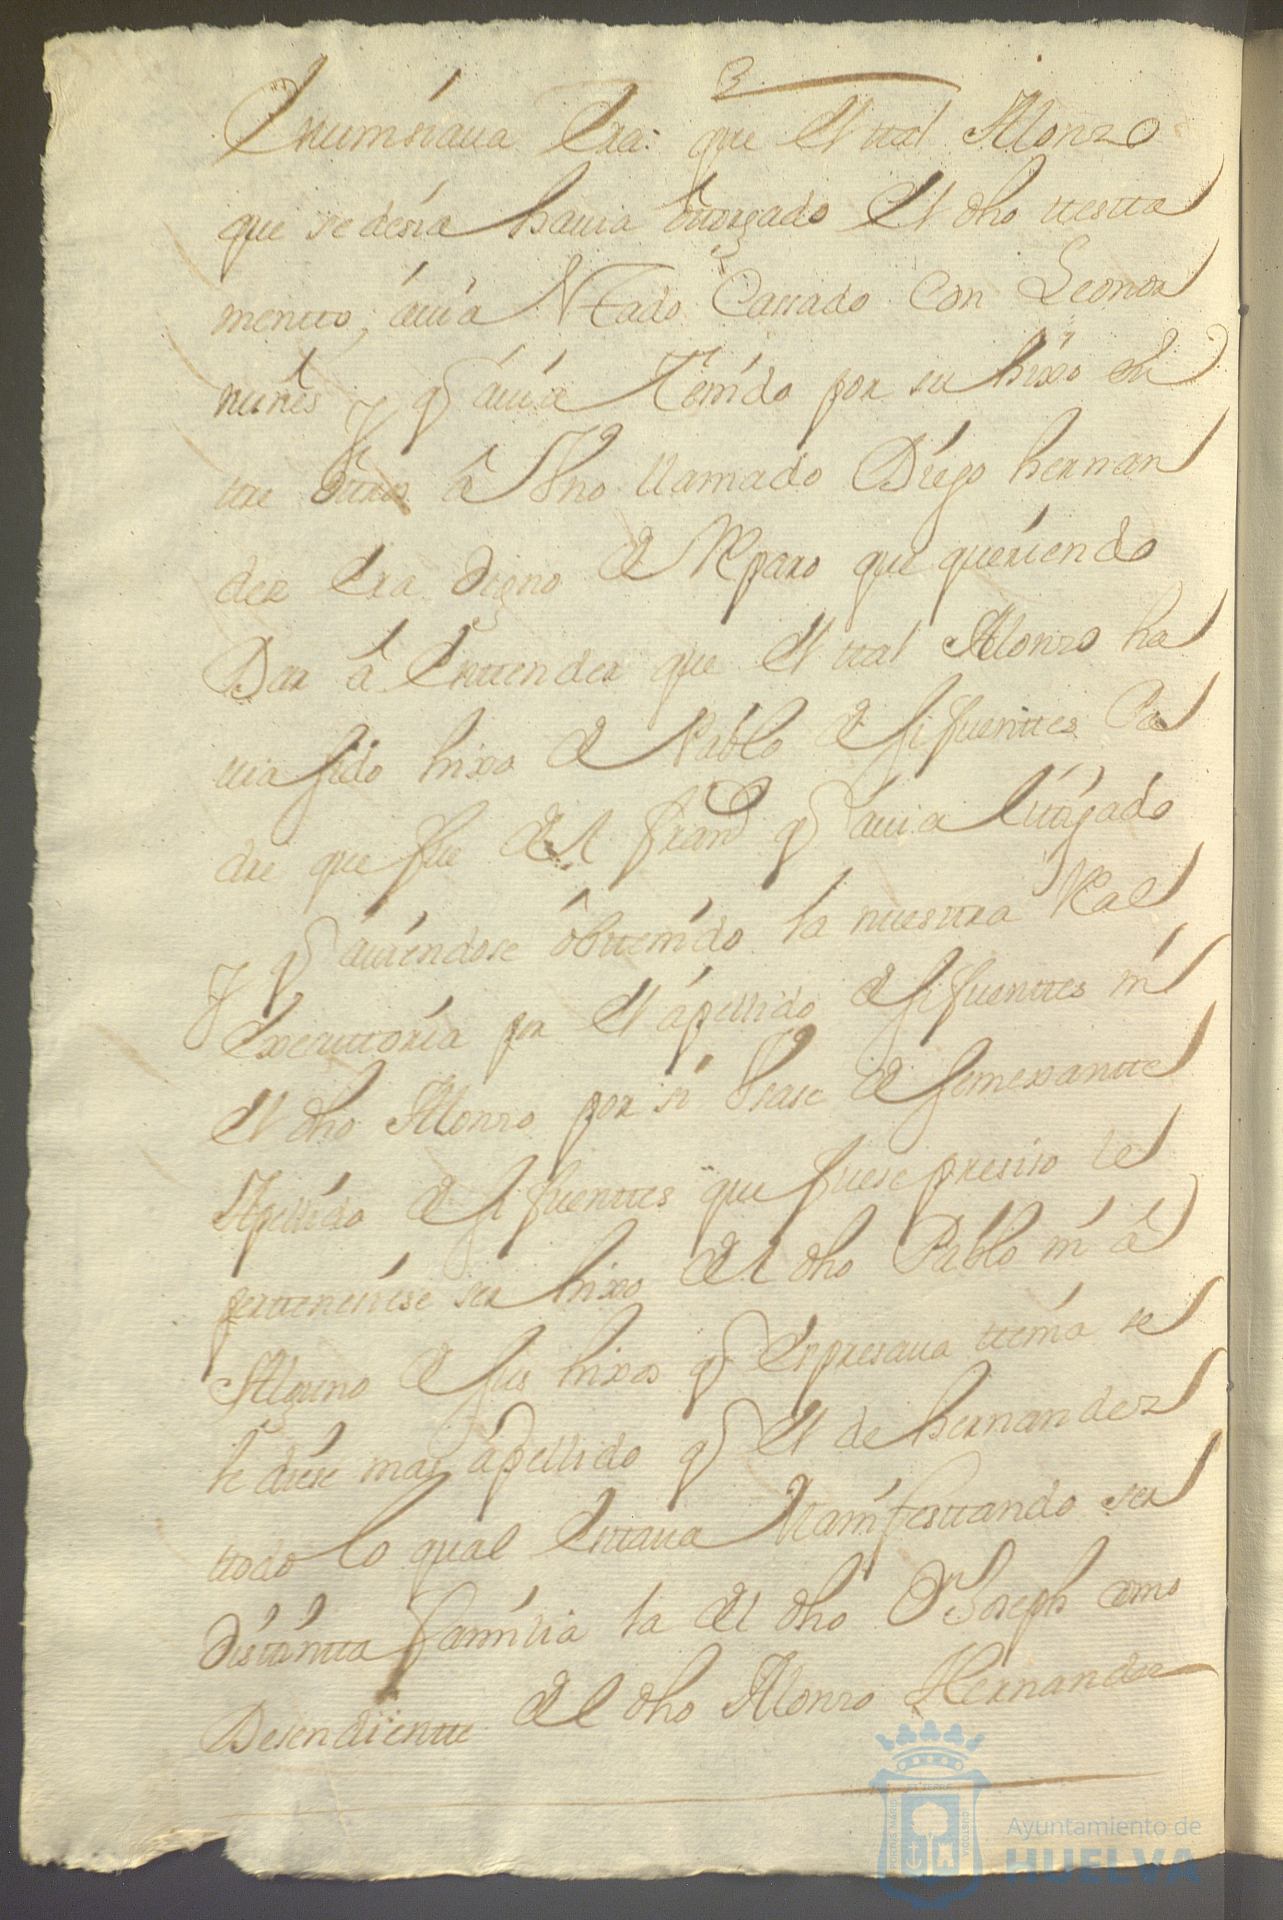 que el ttal Alonzo
que se desia hauia ottorgado el dho ttestta
mentto, auia esttado Cassado Con Leonor
nuñes y q auia Tenido por su hixo en
ttre ôttros â Vno llamado Diego hernan
dez Era digno de Reparo que queriendo
Dar â Enttender que el ttal Alonzo ha
uia sido hixo de Pablo de sifuenttes Pa
dre que fue del Fran.co q auia littigado
y q auiendose ôbttenido la nuesttra Real
Executtoria por el apellido de sifuenttes ni
el dho Alonzo por si Vsase de semexantte
Apellido de sifuenttes que fuese presiso le
perttenesiese ser hixo del dho Pablo ni â
Alguno de sus hixos q Expresaua ttenia se
le diese mas apellido q el de hernandez
ttodo lo qual Esttaua Manifesttando ser
distintta familia la del dho Dn Joseph como
Desendientte del dho Alonzo Hernandez
Ayuntamiento de
HUELVA